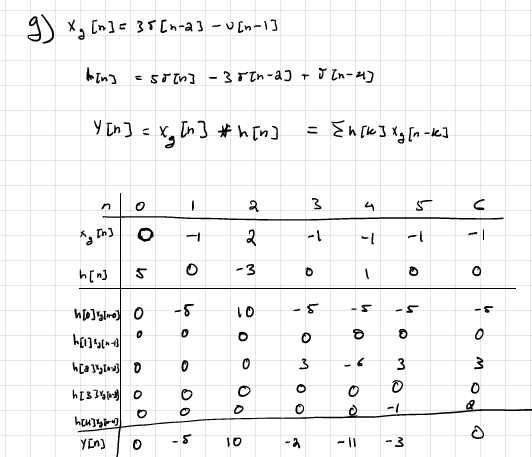 g) x_g [n] = 3δ[n-2] - u[n-1]
h[n] = 5δ[n] - 3δ[n-2] + δ[n-4]
Y[n] = x_g[n] * h[n] = Σh[k] x_g[n-k]
n 0 1 2 3 4 5 6
x_g [n] 0 -1 2 -1 -1 -1 -1
h[n] 5 0 -3 0 1 0 0
h[0]x_g[n-0] 0 -5 10 -5 -5 -5 -5
h[1]x_g[n-1] 0 0 0 0 0 0 0
h[2]x_g[n-2] 0 0 0 3 -6 3 3
h[3]x_g[n-3] 0 0 0 0 0 0 0
h[4]x_g[n-4] 0 0 0 0 0 -1 2
Y[n] 0 -5 10 -2 -11 -3 0